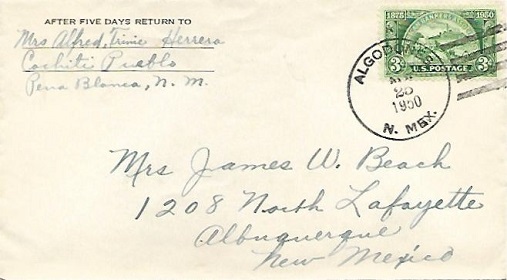 AFTER FIVE DAYS RETURN TO
Mrs Alfred, Trinie Herrera
Cochiti Pueblo
Pena Blanca, N. M.
1875 1950
U.S. POSTAGE
3¢ 3¢
ALGODONES
25
1950
N. MEX.
Mrs James W. Beach
1208 North Lafayette
Albuquerque
New Mexico